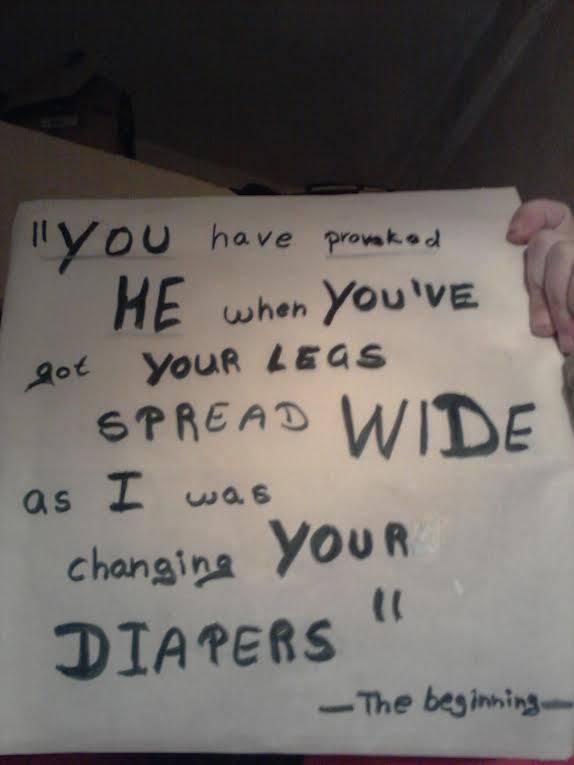 "YOU have provoked
HE when YOU'VE
got YOUR LEGS
SPREAD WIDE
as I was
changing YOUR
DIAPERS"
—The beginning—